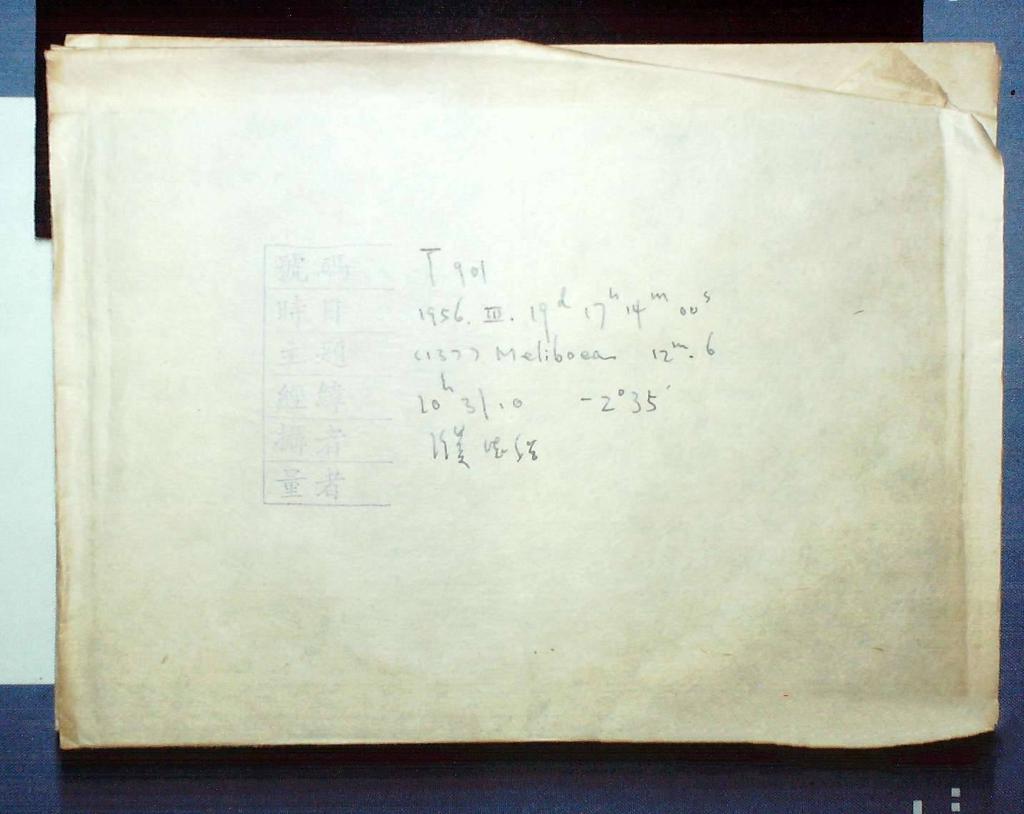 號碼 T 901
時日 1956. III. 19d 17h 14m 00s
主題 (137) Meliboea 12m.6
經緯 10h 31.0 -2°35′
攝者
量者